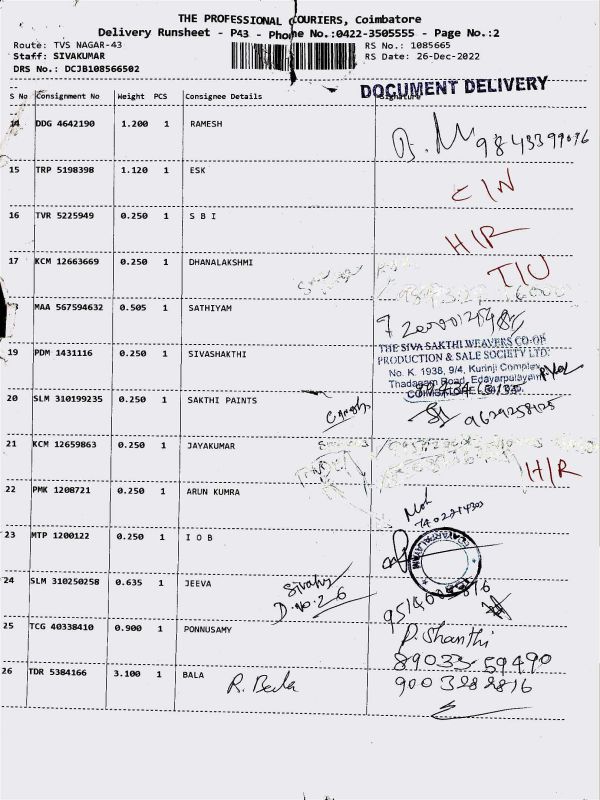 THE PROFESSIONAL COURIERS, Coimbatore
Delivery Runsheet - P43 - Phone No.:0422-3505555 - Page No.:2
Route: TVS NAGAR-43
RS No.: 1085665
Staff: SIVAKUMAR
RS Date: 26-Dec-2022
DRS No.: DCJB108566502
DOCUMENT DELIVERY
S No Consignment No Weight PCS Consignee Details Signature
14 DDG 4642190 1.200 1 RAMESH
9843399076
15 TRP 5198398 1.120 1 ESK C/N
16 TVR 5225949 0.250 1 S B I H/R
17 KCM 12663669 0.250 1 DHANALAKSHMI T/U
MAA 567594632 0.505 1 SATHIYAM
THE SIVA SAKTHI WEAVERS CO-OP
PRODUCTION & SALE SOCIETY LTD.
19 PDM 1431116 0.250 1 SIVASHAKTHI No. K. 1938, 9/4, Kurinji Complex,
Thadagam Road, Edayarpalayam
COIMBATORE
20 SLM 310199235 0.250 1 SAKTHI PAINTS 9629258125
21 KCM 12659863 0.250 1 JAYAKUMAR
H/R
22 PMK 1208721 0.250 1 ARUN KUMRA
23 MTP 1200122 0.250 1 I O B
24 SLM 310250258 0.635 1 JEEVA
D.No:2-6
25 TCG 40338410 0.900 1 PONNUSAMY P. Shanthi
89033 59490
26 TDR 5384166 3.100 1 BALA 9003282816
R. Bala